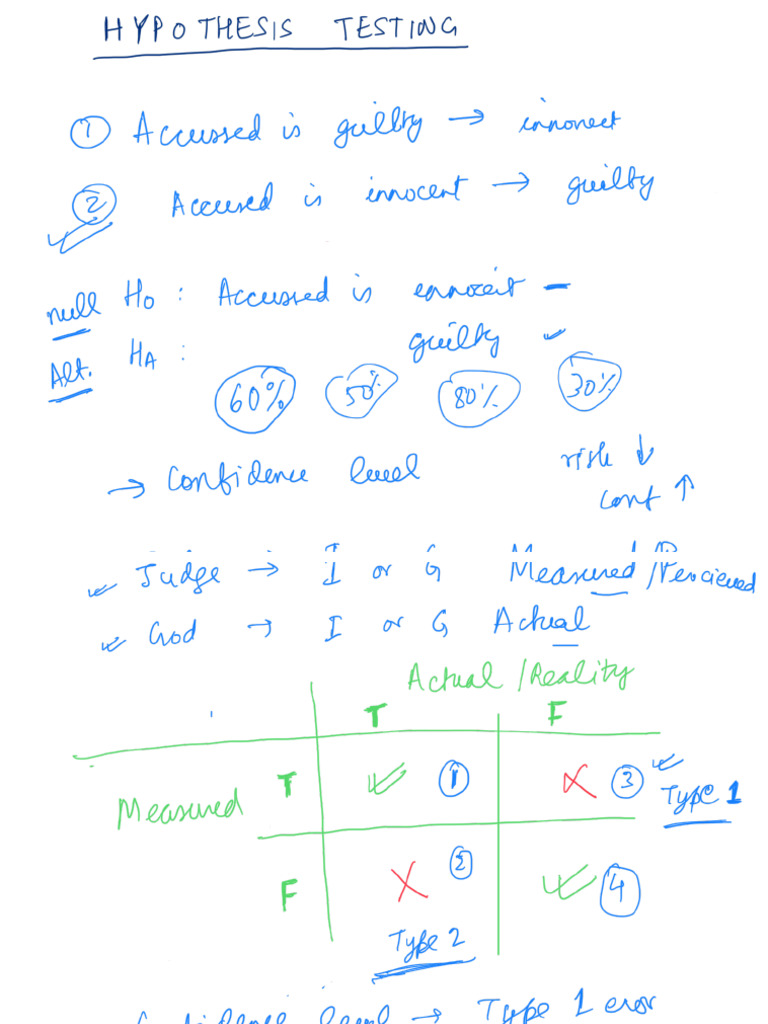 HYPOTHESIS TESTING
① Accussed is guilty → innonect
② Accused is innocent → guilty
null H0 : Accussed is ennoceit –
Alt. HA : guilty
60% 50% 80% 30%
→ Confidence level risk ↓
conf ↑
Judge → I or G Measured/Percieved
God → I or G Actual
Actual/Reality
T F
Measured T ① ③ Type 1
F ② ④
Type 2
Confidence level → Type 1 eror